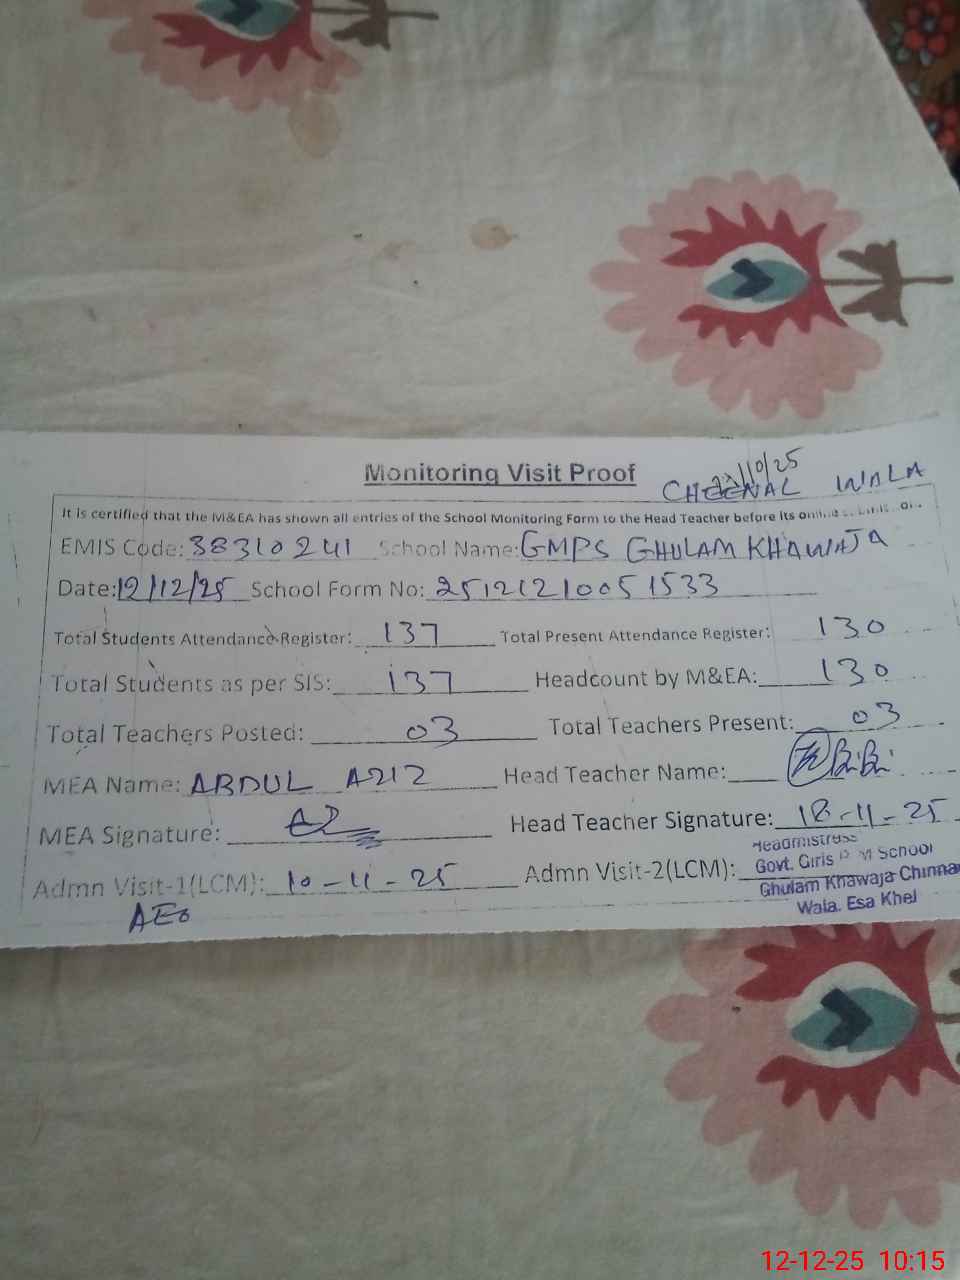 Monitoring Visit Proof
22/10/25
CHEENAL WALA
It is certified that the M&EA has shown all entries of the School Monitoring Form to the Head Teacher before its online
EMIS Code: 38310241 School Name: GMPS GHULAM KHAWAJA
Date: 12/12/25 School Form No: 25121210051533
Total Students Attendance Register: 137 Total Present Attendance Register: 130
Total Students as per SIS: 137 Headcount by M&EA: 130
Total Teachers Posted: 03 Total Teachers Present: 03
MEA Name: ABDUL AZIZ Head Teacher Name: BiBi
MEA Signature: Head Teacher Signature: 18-11-25
Admn Visit-1(LCM): 10-11-25 Admn Visit-2(LCM):
AEO
Headmistress
Govt. Girls School
Ghulam Khawaja Chinna
Wala. Esa Khel
12-12-25 10:15